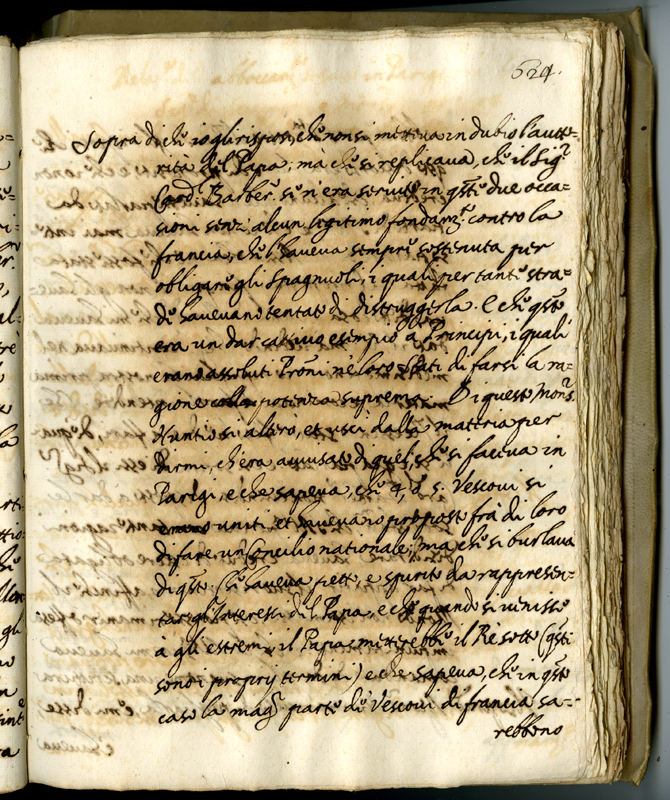 524.
Sopra di che io gli risposi, che non si metteva in dubio l'autto=
rità del Papa; ma che si replicava, che il Sig.r
Card. Barber.o se n'era servito in q.ste due occa=
sioni senz'alcun legitimo fondam.to contro la
francia, che l'haveva sempre sostenuta per
obligare gli Spagnuoli, i quali per tante stra=
de havevano tentato di distruggerla. E che q.sto
era un dar cattivo esempio a Principi, i quali
erano assoluti Proni ne loro Stati di farsi la ra=
gione colla potenza suprema. Di questo Mons.r
Nuntio si alterò, et uscì dalla materia per
dirmi, ch'era avvisato di quel, che si faceva in
Parigi, e che sapeva, che 4, ò 5. Vescovi si
erano uniti, et havevano proposto frà di loro
di fare un Concilio nationale; ma che si burlava
di q.sto. Ch'haveva petto, e spirito da rappresen=
tar gl'Interessi del Papa, e che quando si venisse
à gli estremi, il Papa metterebbe il Rè sotto (q.sti
sono i proprij termini) e che sapeva, che in q.sto
caso la mag.r parte de Vescovi di francia sa=
rebbeno